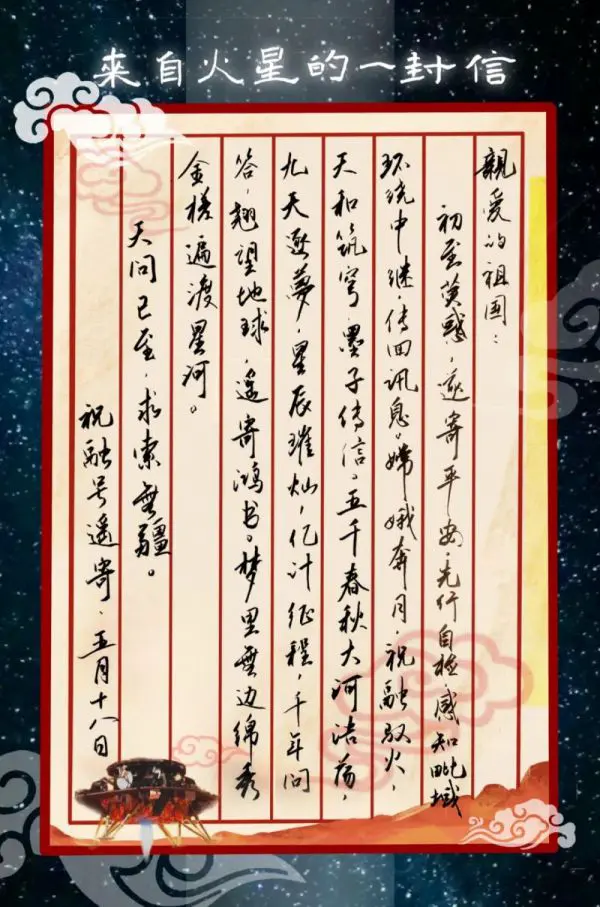 來自火星的一封信
親爱的祖国：
初至荧惑，遥寄平安，先行自检，感知毗域
环绕中继，传回讯息。嫦娥奔月，祝融驭火，
天和筑穹，墨子传信。五千春秋大河浩荡，
九天逐夢，星辰璀灿，亿计征程，千年问
答，翘望地球，遥寄鸿书。梦里無边绵秀
金槎遍渡星河。
天问已至，求索無疆。
祝融号遥寄，五月十八日